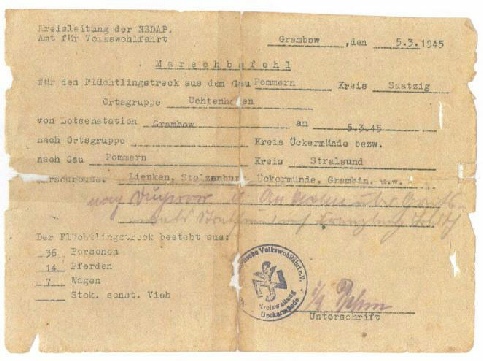 Kreisleitung der NSDAP.
Amt für Volkswohlfahrt
Grambow, den 5.3.1945
Marschbefehl
für den Flüchtlingstreck aus dem Gau Pommern Kreis Saatzig
Ortsgruppe Uchtenhagen
von Lotsenstation Grambow am 5.3.45
nach Ortsgruppe Kreis Ückermünde bezw.
nach Gau Pommern Kreis Stralsund
Lienken, Stolzenburg Uekermünde, Grambin, usw.
Der Flüchtlingstreck besteht aus:
36 Personen
14 Pferden
7 Wagen
Stck. sonst. Vieh
Unterschrift